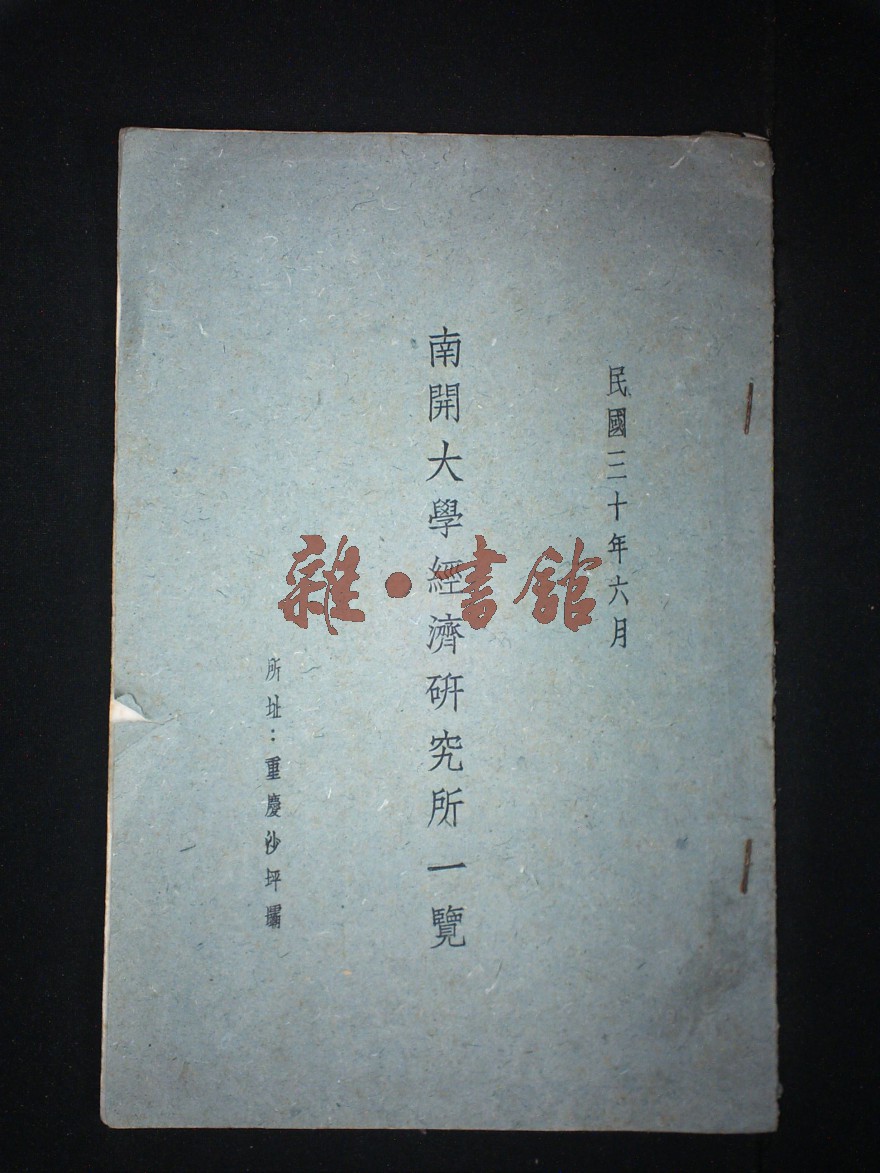 民國三十年六月
南開大學經濟硏究所一覽
所址：重慶沙坪壩
雜·書館